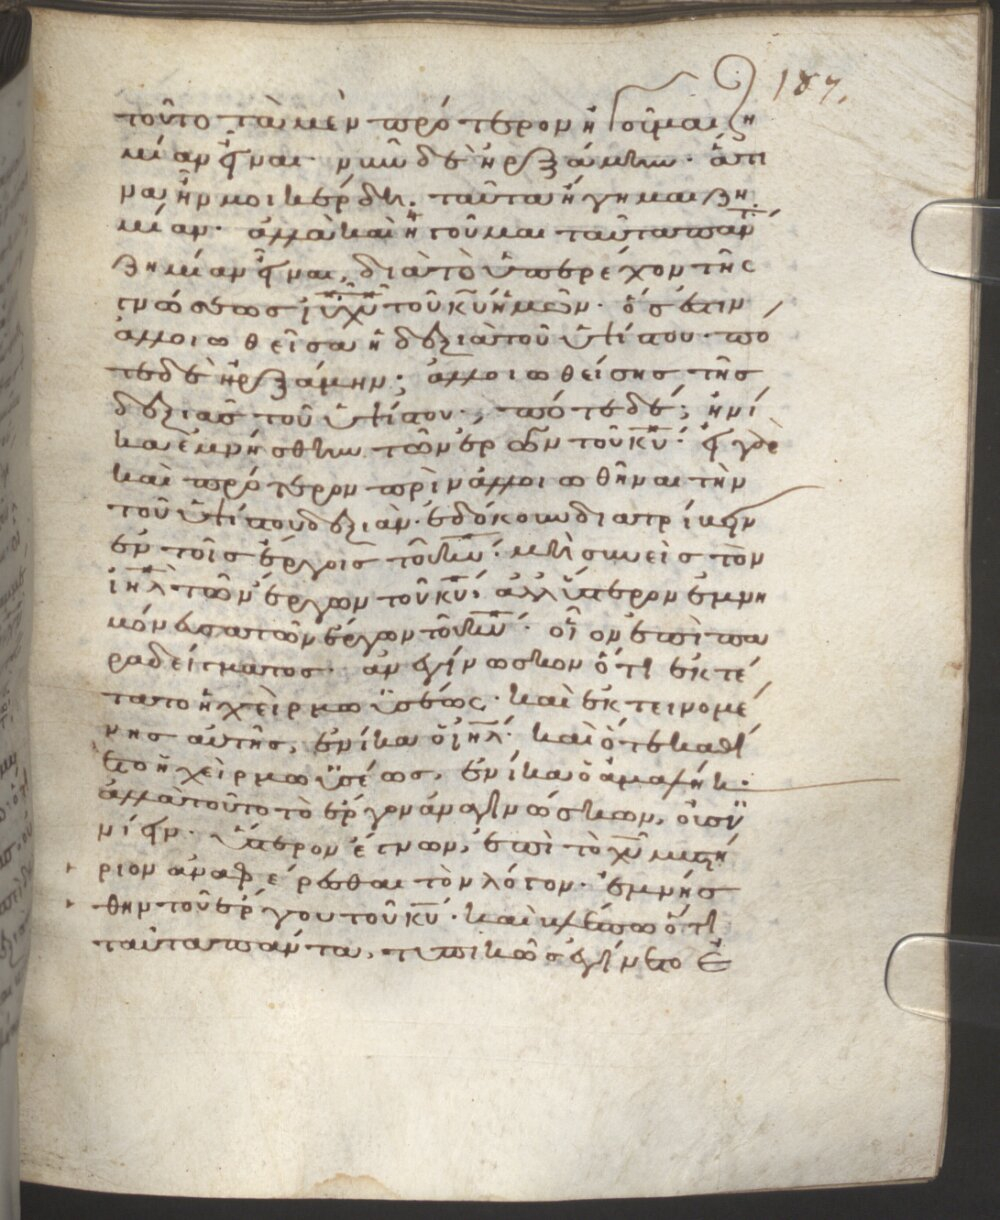 187.
τοῦτο τὰ μὲν πρότερον ἡγοῦμαι ζη
μίαν εἶναι· νῦν δὲ ἠρξάμην· ἅτι
να ἦν μοι κέρδη· ταῦτα ἥγημαι ζη
μίαν· ἀλλὰ καὶ ἡγοῦμαι ταῦτα πάντ
ζημίαν εἶναι, διὰ τὸ ὑπερέχον τῆς
γνώσεως ιυ χυ τοῦ κυ ἡμῶν· ὅς ἐστιν
ἀλλοιωθεῖσα ἡ δεξιὰ τοῦ ὑψίστου· πό
τε δὲ ἠρξάμην; ἀλλοιωθείσης τῆς
δεξιᾶς τοῦ ὑψίστου· πότε δέ; ἡνί
κα ἐμνήσθην τῶν ἔργων τοῦ κυ· εἰ γὰρ
καὶ πρότερον πρὶν ἀλλοιωθῆναι τὴν
τοῦ ὑψίστου δεξιὰν· ἐδόκουν διατρίβειν
ἐν τοῖς ἔργοις τοῦ κυ· μὴ συνεὶς τὸν
ιηλ τῶν ἔργων τοῦ κυ· ἀλλ' ὕστερον ἐμνη
μόνευσα τῶν ἔργων τοῦ κυ· οἷον ἐπὶ πα
ραδείγματος· ἀνεγίνωσκον ὅτι ἐκτέ
τατο ἡ χεὶρ μωϋσέως· καὶ ἐκτεινομέ
νης αὐτῆς, ἐνίκα ὁ ιηλ· καὶ ὅτε καθί
ετο ἡ χεὶρ μωϋσέως, ἐνίκα ὁ ἀμαλήκ·
ἀλλὰ τοῦτο τὸ ἔργον ἀναγινώσκων, οὐ συ
νίειν· ὕστερον ἔγνων, ἐπὶ τὸ χυ μυστή
ριον ἀναφέρεσθαι τὸν λόγον· ἐμνήσ
θην τοῦ ἔργου τοῦ κυ· καὶ βλέπω ὅτι
ταῦτα πάντα, τυπικῶς ἐγίνετο ἐ